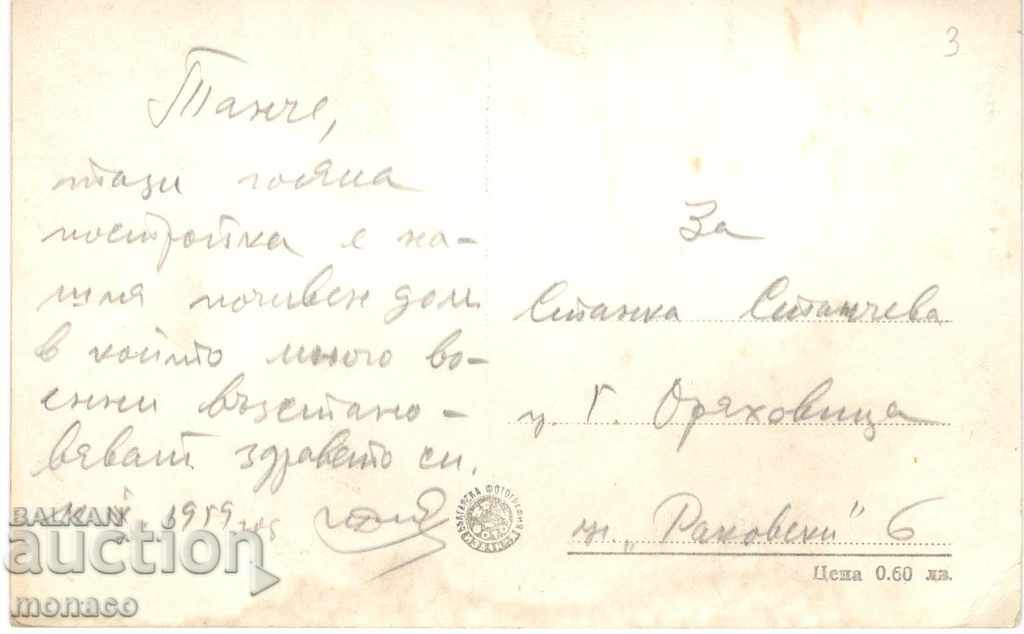 3
Танче,
тази голяма
постройка е на-
шия почивен дом
в който много во-
енни възстано-
вяват здравето си.
1959 год
За
Станка Станчева
г. Г. Оряховица
ул. „Раковски" 6
БЪЛГАРСКА ФОТОГРАФИЯ
Цена 0.60 лв.
BALKAN
auction
monaco